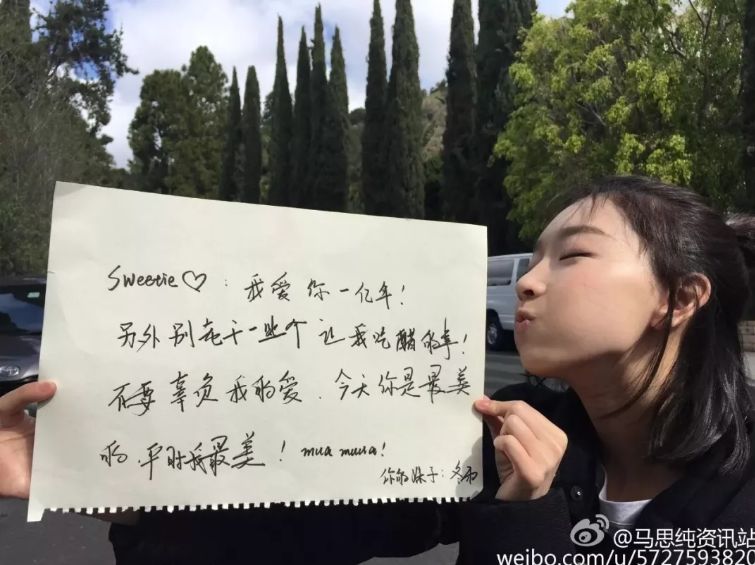 Sweetie♡：我爱你一亿年！
另外别在干一些个让我吃醋的事！
不要辜负我的爱．今天你是最美
的．平时我最美！mua muua！
你的妹子：冬雨
@马思纯资讯站
weibo.com/u/5727593820